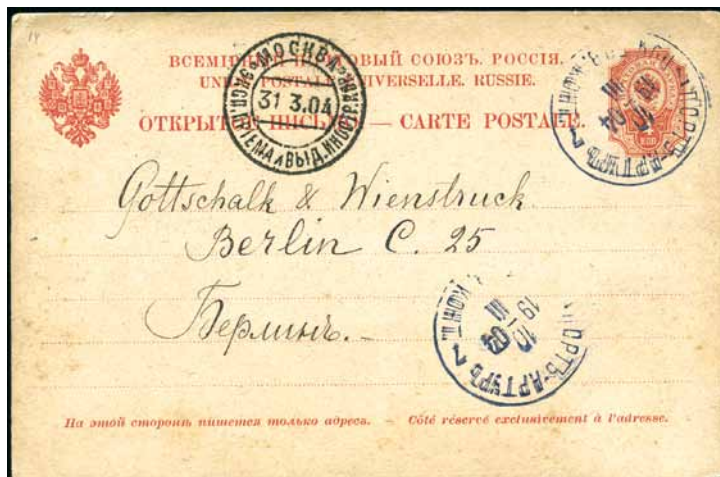 14
ВСЕМІРНЫЙ ПОЧТОВЫЙ СОЮЗЪ. РОССІЯ.
UNION POSTALE UNIVERSELLE. RUSSIE.
ОТКРЫТОЕ ПИСЬМО — CARTE POSTALE.
МОСКВА
31 3.04
ЭКСП. ПРІЕМА И ВЫД. ИНОСТР. КОР.
ПОРТЪ-АРТУРЪ
19 III 04
10
Gottschalk & Wienstruck
Berlin C. 25
Берлинъ.-
ПОРТЪ-АРТУРЪ
19 III 04
10
На этой сторонѣ пишется только адресъ. — Côté réservé exclusivement à l'adresse.